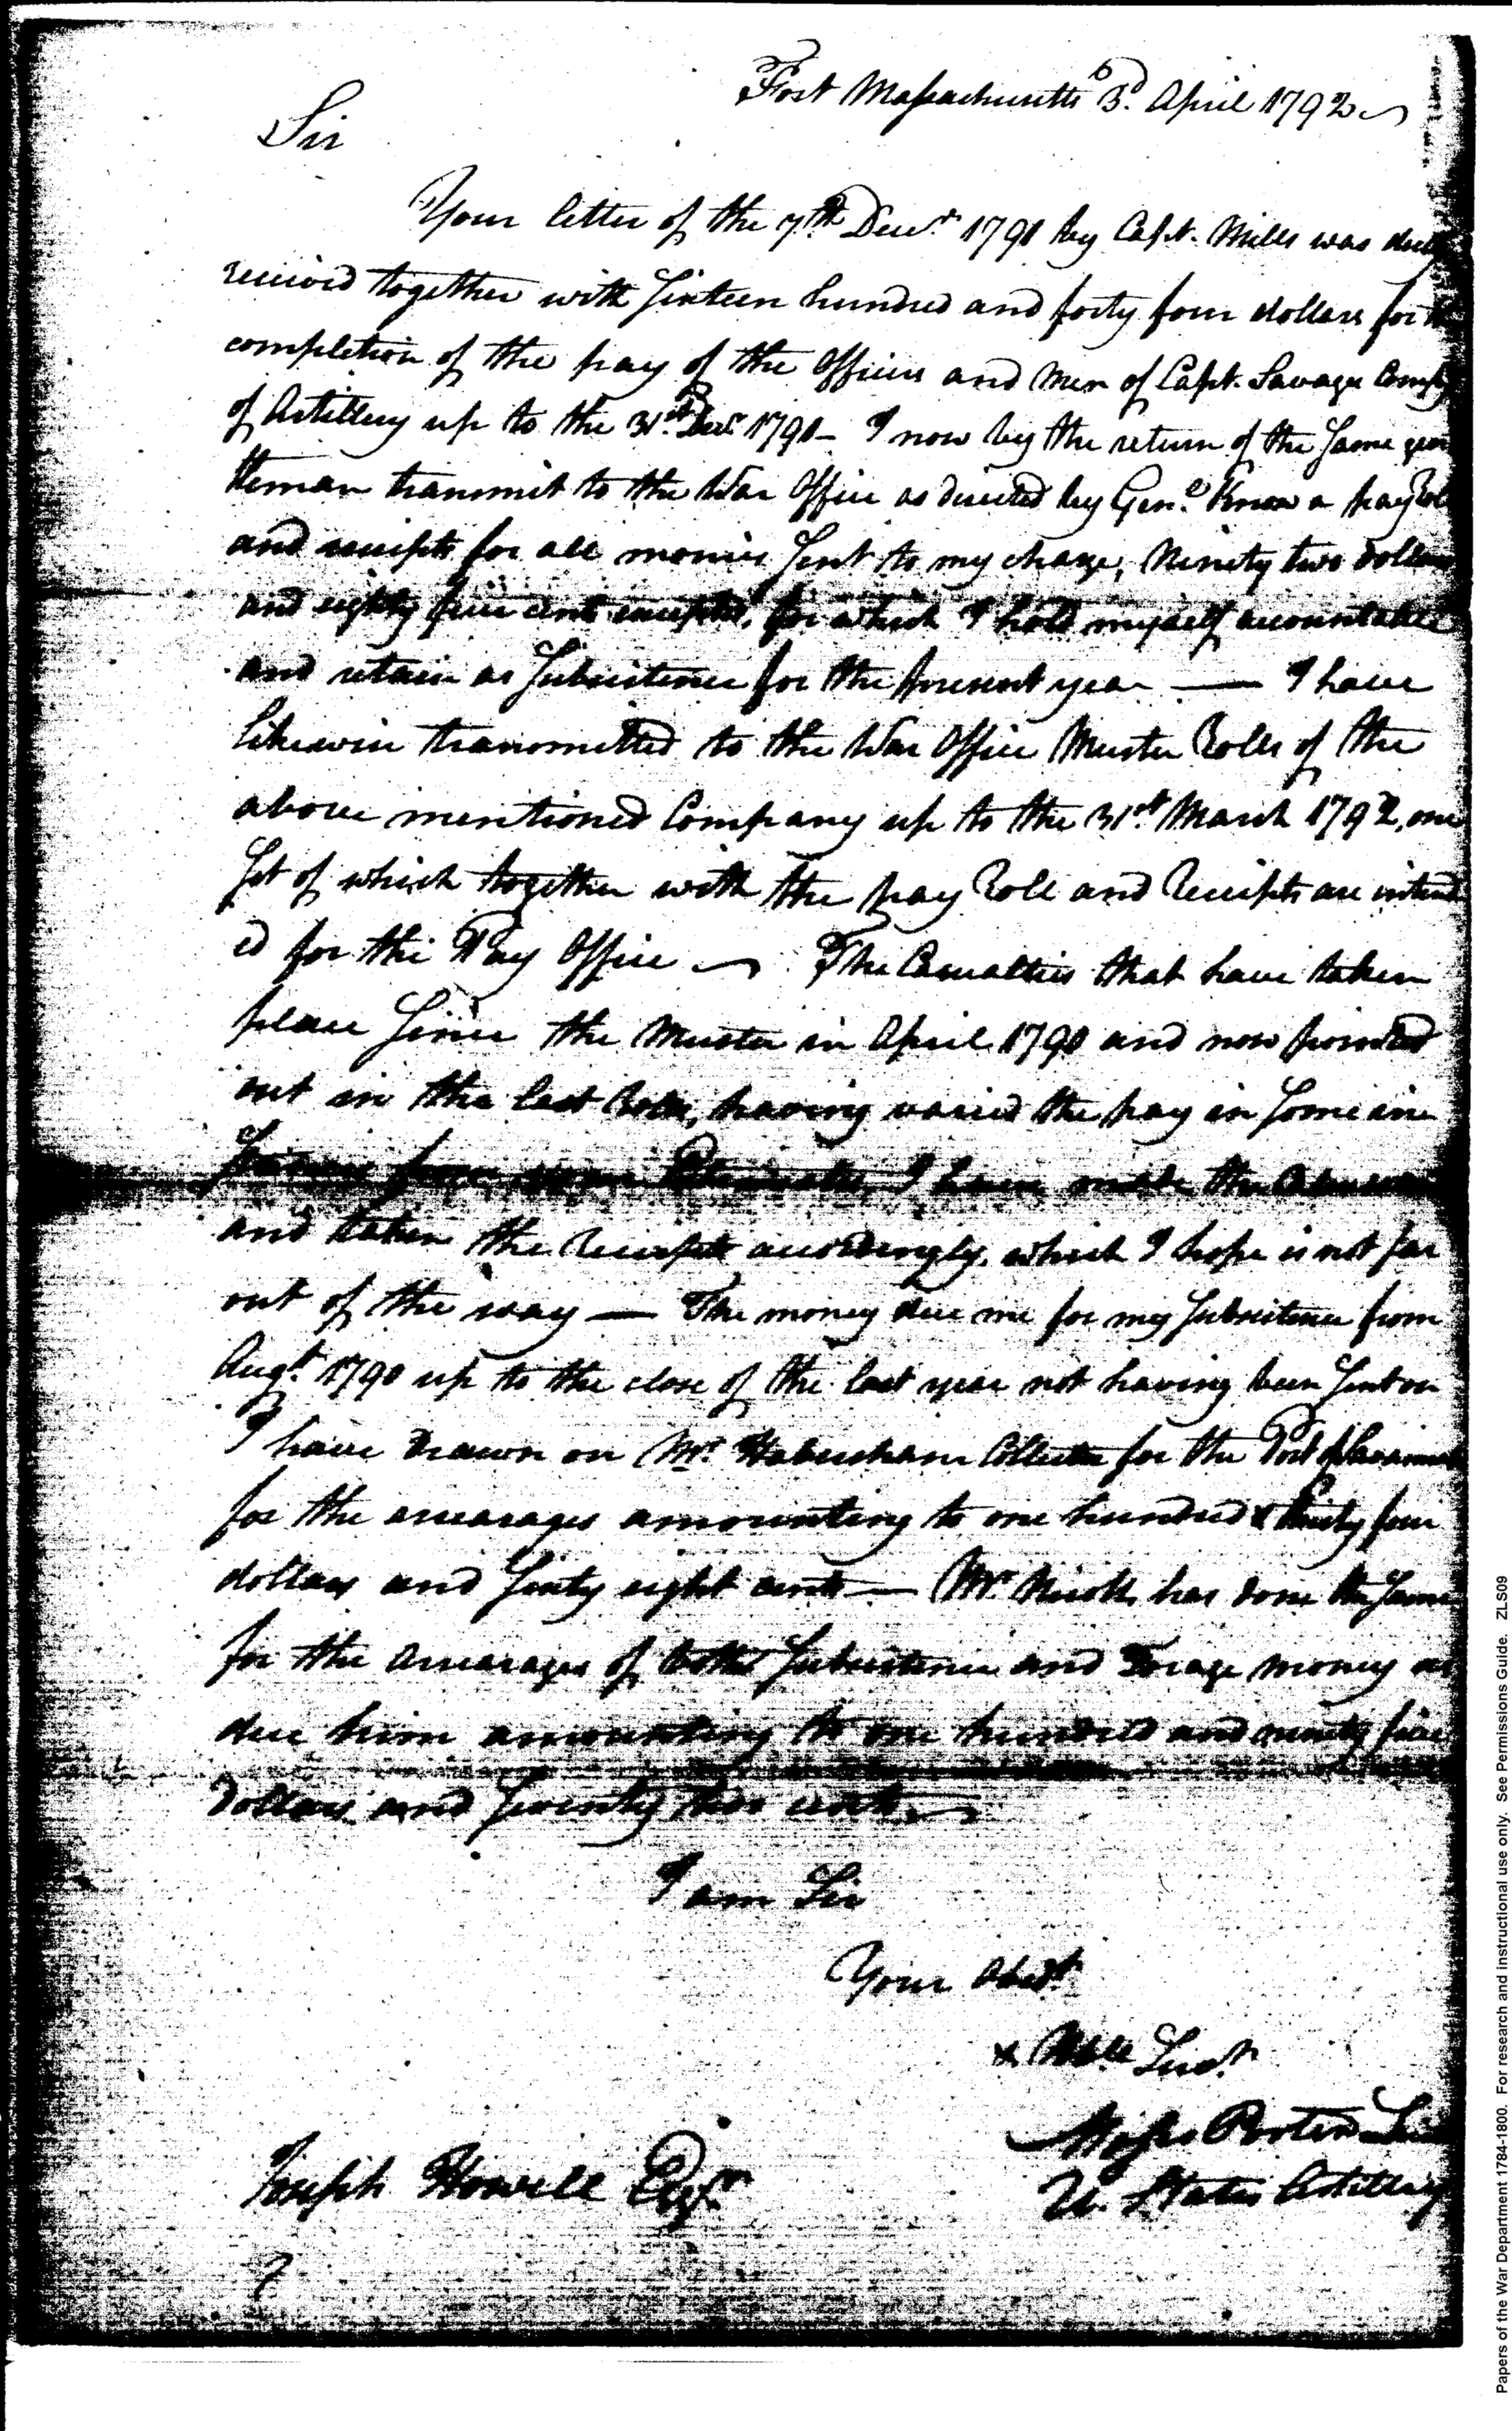 Fort Massachusetts 3d. April 1792
Sir
Your letter of the 7th Decr. 1791 by Capt. Mills was duly
received together with Sixteen hundred and forty four dollars for the
completion of the pay of the Officers and Men of Capt. Savage Compy
of Artillery up to the 31st. Decr. 1791 - I now by the return of the Same gen
tleman transmit to the War Office as directed by Genl. Knox a pay Roll
and receipts for all monies Sent to my charge, Ninety two dollars
and eighty five cents excepted, for which I hold myself accountable
and retain as Subsistence for the present year — I have
likewise transmitted to the War Office Muster Rolls of the
above mentioned Company up to the 31st. March 1792, one
Set of which together with the pay Roll and Receipts are intend
ed for the Pay Office The Casualties that have taken
place Since the Muster in April 1790 and now pointed
out in the last Rolls, having varied the pay in Some in
from your I have made the
and taken the Receipts accordingly, which I hope is not far
out of the way — The money due me for my Subsistence from
Augt. 1790 up to the close of the last year not having been Sent on
I have drawn on Mr. Habersham Collector for the Port of Savannah
for the arrearages amounting to one hundred & thirty four
dollars and Sixty eight cents — Mr. has done the Same
for the Arrearages of both Subsistence and Forage money as
due him amounting to one hundred and ninety five
dollars and Seventy two cents
I am Sir
Your Obedt
& Hble Servt.
Moses Porter Lieut
U. States Artillery
Joseph Howell Esqr.
Papers of the War Department 1784-1800. For research and instructional use only. See Permissions Guide. ZLS09